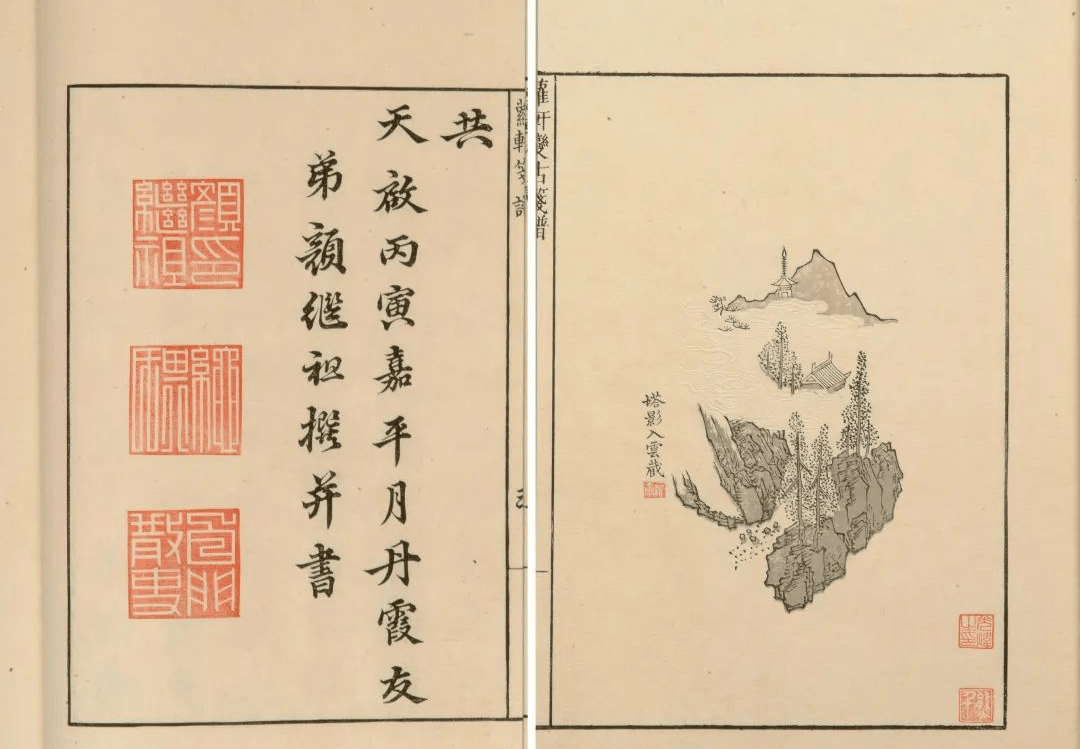 共
天啟丙寅嘉平月丹霞友
弟顏継祖撰并書
顏繼祖印
蘿軒變古箋譜
塔影入雲藏